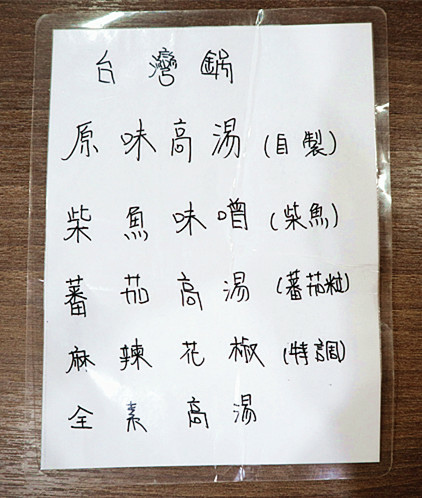 台灣鍋
原味高湯(自製)
柴魚味噌(柴魚)
蕃茄高湯(蕃茄粒)
麻辣花椒(特調)
全素高湯